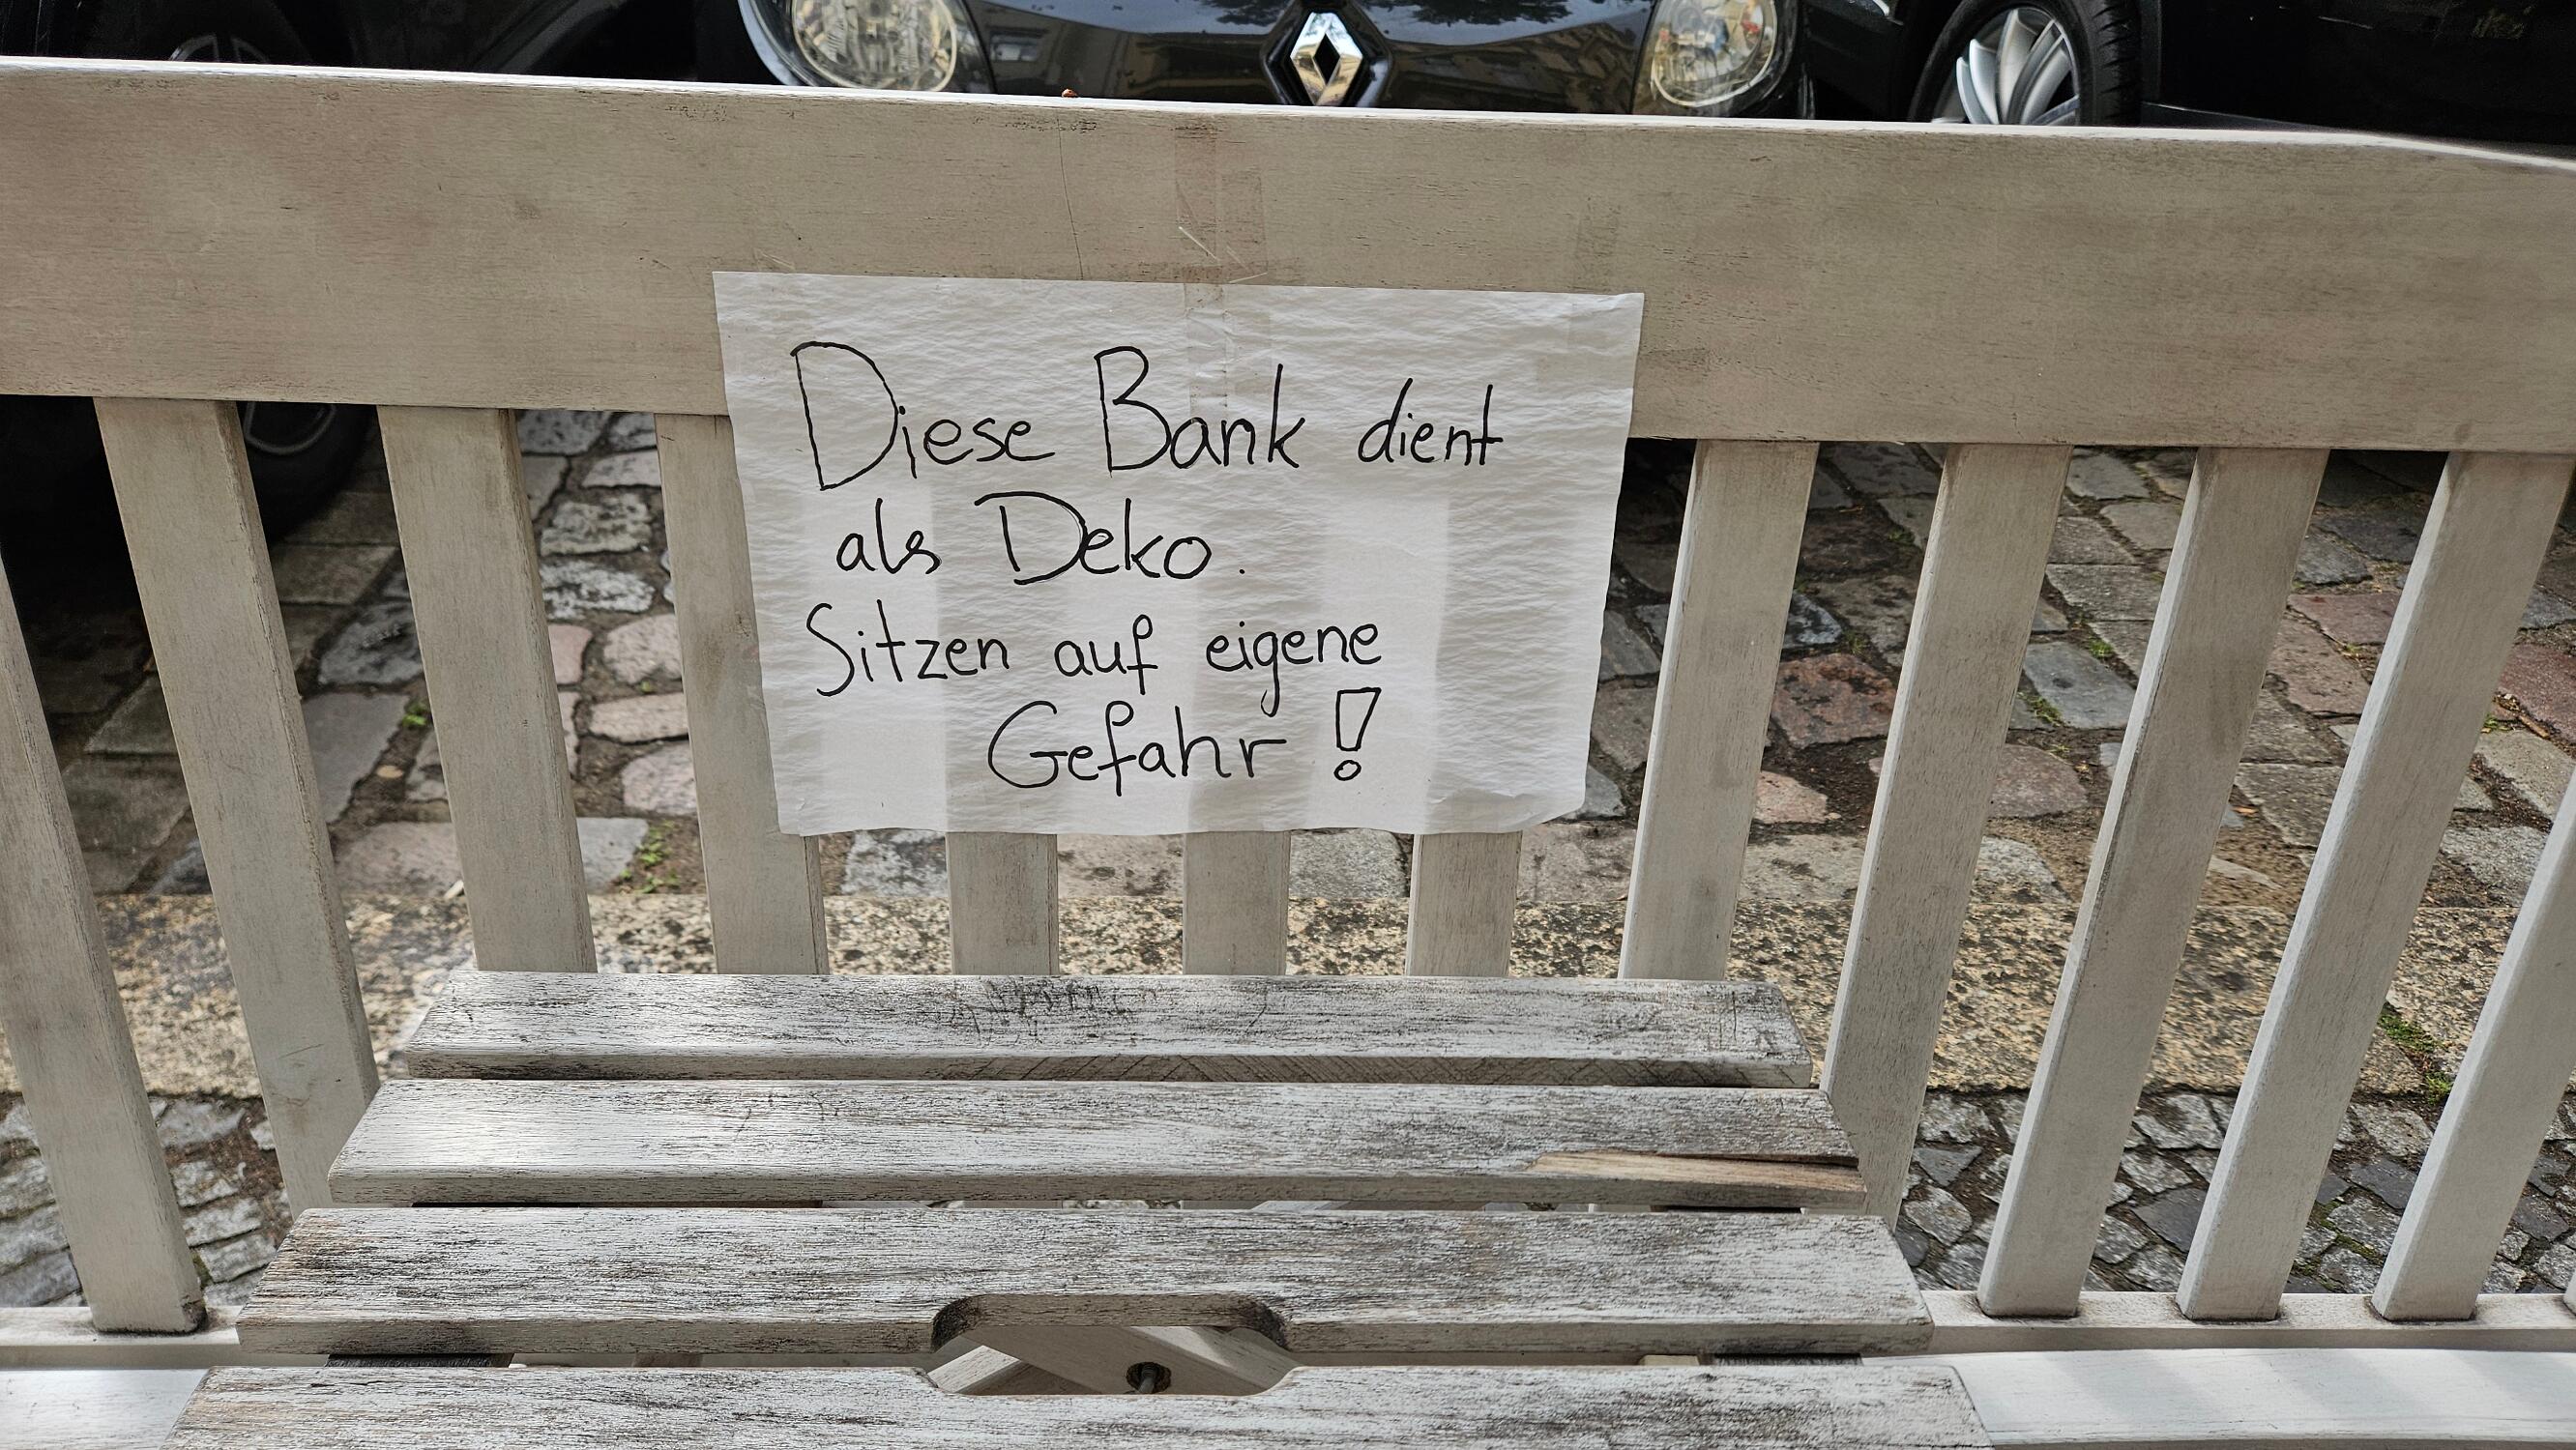 Diese Bank dient
als Deko.
Sitzen auf eigene
Gefahr!